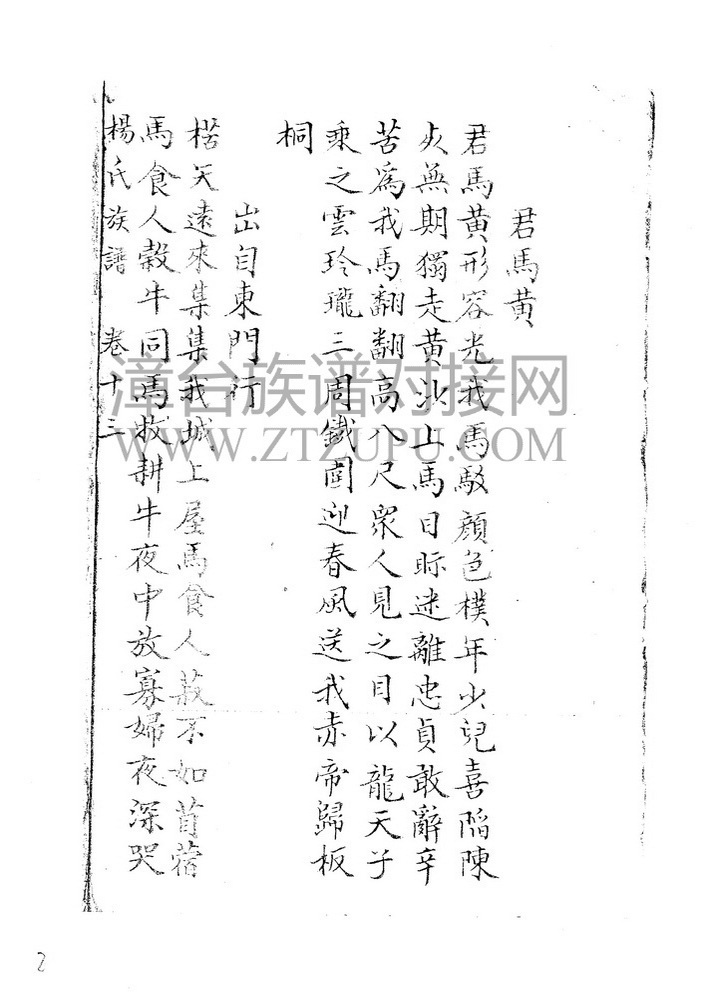 君馬黃
君馬黃形容光我馬駁顏色樸年少兒喜陷陳
火無期獨走黃沙上馬日眎迷離忠貞敢辭辛
苦爲我馬翻翻高八尺眾人見之目以龍天子
乘之雲玲瓏三周鐵圍迎春風送我赤帝歸板
桐
出自東門行
楛矢遠來集集我城上屋馬食人菽不如苜蓿
馬食人穀牛同馬牧耕牛夜中放寡婦夜深哭
楊氏族譜 卷十三
漳台族谱对接网
WWW.ZTZUPU.COM
2